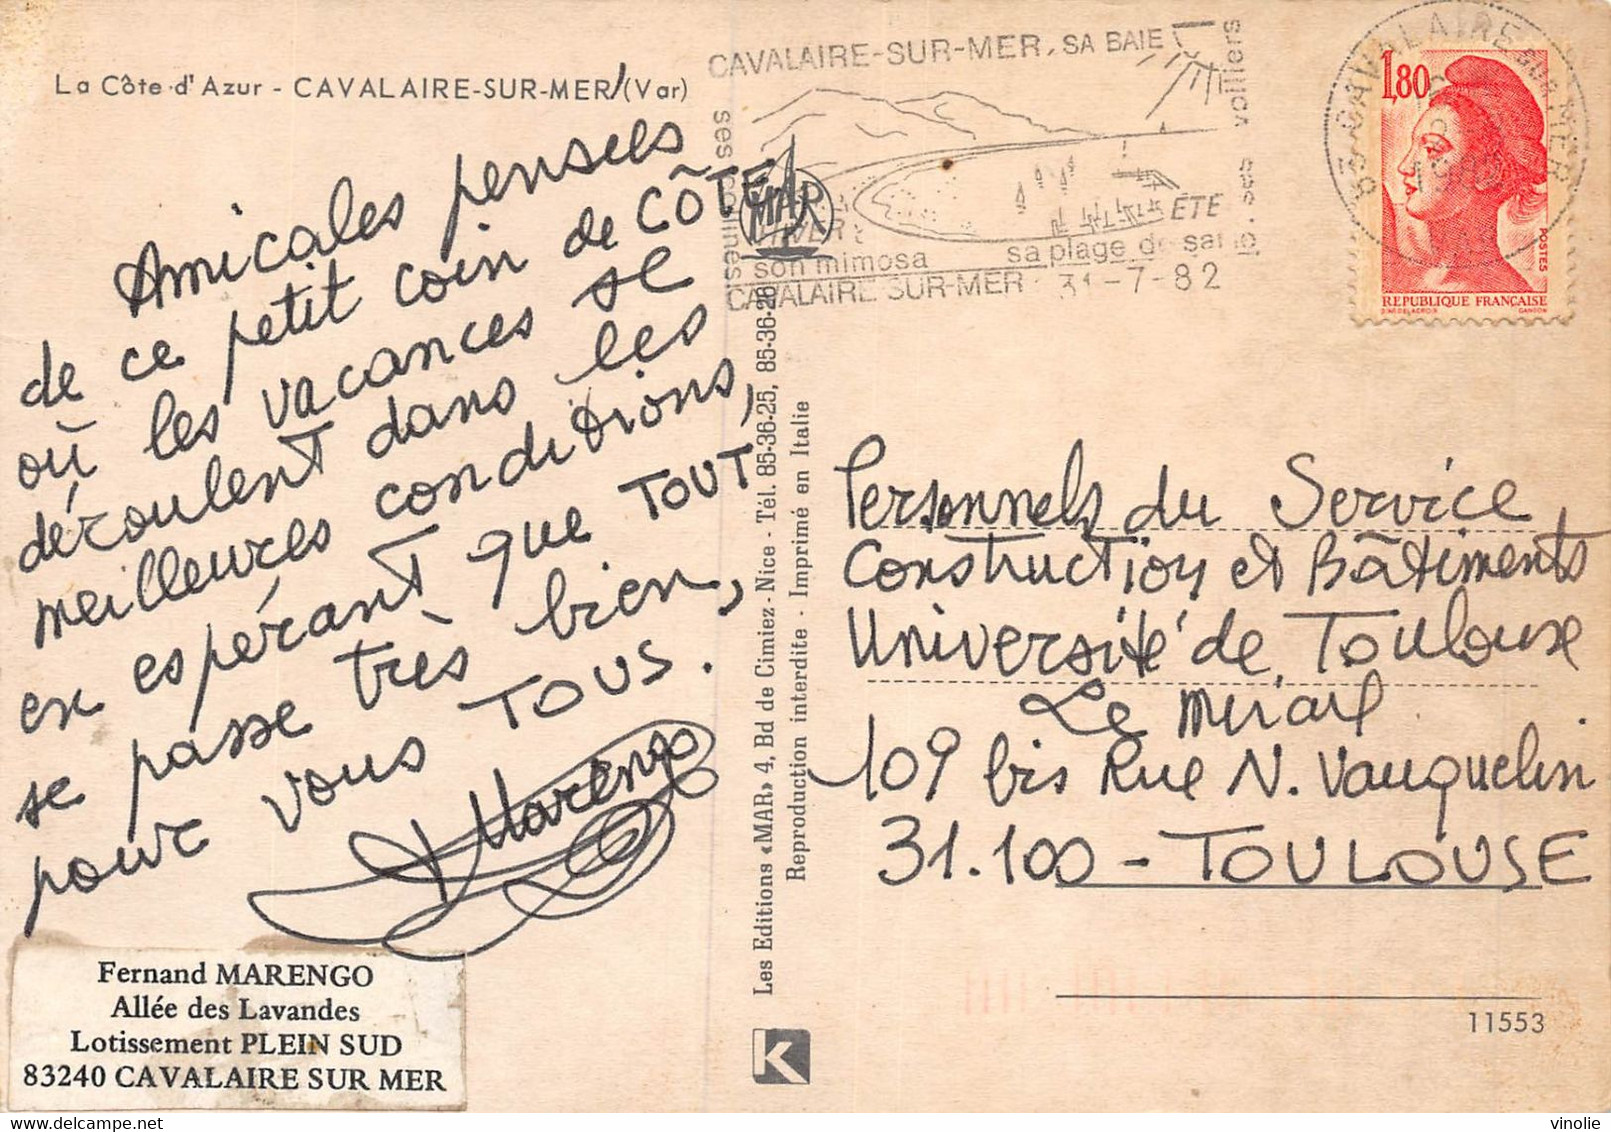 La Côte d'Azur - CAVALAIRE-SUR-MER (Var)
Amicales pensées
de ce petit coin de CÔTE,
où les vacances se
déroulent dans les
meilleures conditions,
en espérant que TOUT
se passe très bien,
pour vous TOUS.
Marengo
Fernand MARENGO
Allée des Lavandes
Lotissement PLEIN SUD
83240 CAVALAIRE SUR MER
CAVALAIRE-SUR-MER, SA BAIE
ses collines
ses voiliers
MAR
HIVER
son mimosa
ÉTÉ
sa plage de sable
CAVALAIRE SUR-MER 31-7-82
Les Editions «MAR» 4, Bd de Cimiez - Nice - Tél. 85-36-25, 85-36-26
Reproduction interdite - Imprimé en Italie
K
83 CAVALAIRE SUR MER
1,80
POSTES
REPUBLIQUE FRANÇAISE
D'AP. DELACROIX GANDON
Personnels du Service
Construction et Bâtiments
Université de Toulouse
Le Mirail
109 bis Rue N. Vauquelin
31.100 - TOULOUSE
11553
vinolie